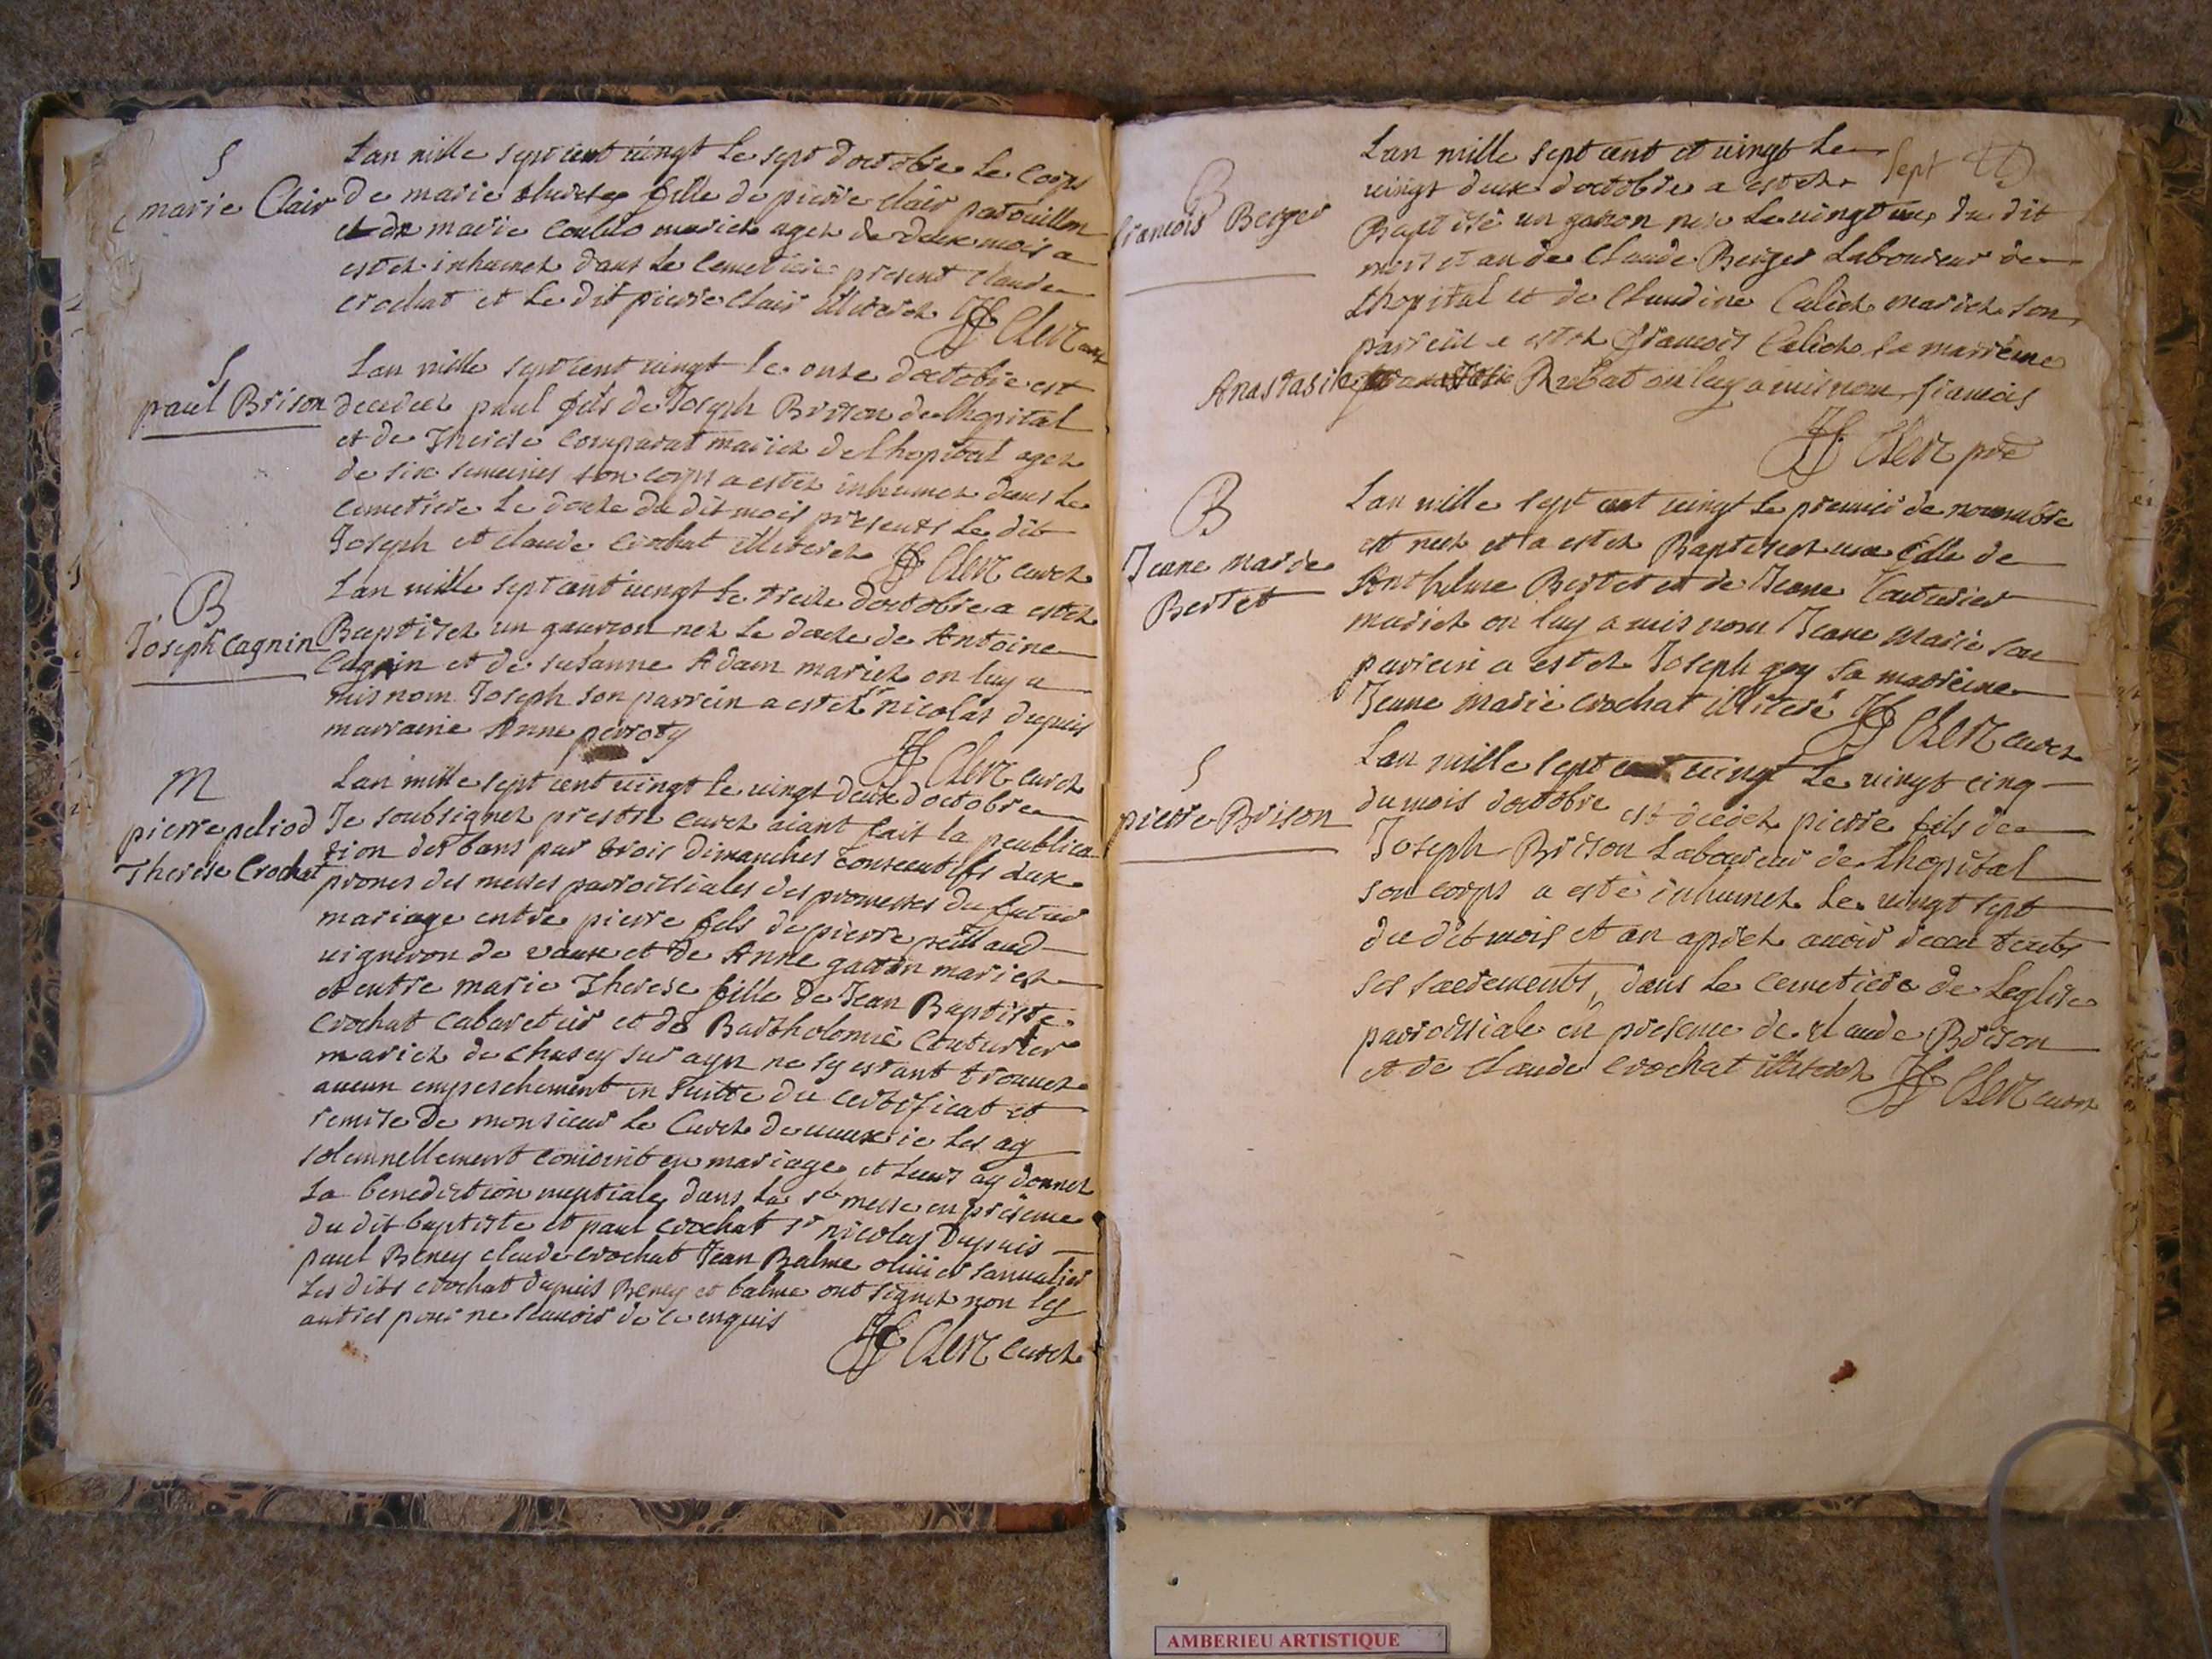 S
marie Clair
Lan mille sept cent vingt le sept doctobre le corps
de marie fille de pierre clair patouillon
et de marie mariez agez de deux mois a
estez inhumez dans le cemetiere present claude
crochat et le dit pierre clair illiterez JF Clerc curez
S
paul Brison
Lan mille sept cent vingt le onze doctobre est
decedez paul fils de Joseph Brison de lhopital
et de Therese comparat mariez de lhopital agez
de six semaines son corps a estez inhumez dans le
cemetiere le doze du dit mois presents le dit
Joseph et claude crochat illiterez JF Clerc curez
B
Joseph Cagnin
Lan mille sept cent vingt le treize doctobre a estez
Baptisez un garcon nez le doze de Antoine
Cagnin et de susanne Adam mariez on luy a
mis nom Joseph son parrein a estez sr nicolas dupuis
marraine Anne perroty
JF Clerc curez
M
pierre peliod
Therese Crochat
Lan mille sept cent vingt le vingt deux doctobre
Je soubsignez prestre curez aiant fait la peublica
tion des bans par trois dimanches consecutifs aux
prones des messes parroissiales des promesses du futur
mariage entre pierre fils de pierre
vigneron de vaux et de Anne mariez
et entre marie Therese fille de Jean Baptiste
Crochat Cabaretier et de Bartholomie Couturier
mariez de chasey sur ayn ne sy estant trouvez
aucun empeschement en suitte du certificat et
remise de monsieur le Curez de vaux ie les ay
solennellement conioint en mariage et leurs ay donnez
la benediction nuptiale dans la ste messe en presence
du dit baptiste et paul crochat sr nicolas Dupuis
paul Beney claude crochat Jean Balme olivier
les dits crochat dupuis Beney et balme ont signez non les
autres pour ne scavoir de ce enquis
JF Clerc curez
sept
B
francois Berger
Lan mille sept cent et vingt le
vingt deux doctobre a estez
Baptisé un garson nez le vingt un du dit
mois et an de Claude Berger Laboureur de
Lhopital et de Claudine Caliez mariez son
parrein a estez francois Caliez sa marreine
Anastasie Rubat on luy a mis nom francois
JF Clerc pre
B
Jeane marie
Bertet
Lan mille sept cent vingt le premier de novembre
est neez et a estez Baptisez une fille de
Anthelme Bertet et de Jeane Couturier
mariez on luy a mis nom Jeane Marie son
parrein a estez Joseph goy sa marreine
Jeane Marie crochat illiteré JF Clerc curez
S
pierre Brison
Lan mille sept cent vingt le vingt cinq
du mois doctobre est decedez pierre fils de
Joseph Brison Laboureur de Lhopital
son corps a esté inhumez le vingt sept
du dit mois et an aprez avoir receu touts
ses sacrements, dans le cemetiere de Leglise
parroissiale en presence de claude Brison
et de Claude crochat illiterez JF Clerc curez
AMBERIEU ARTISTIQUE